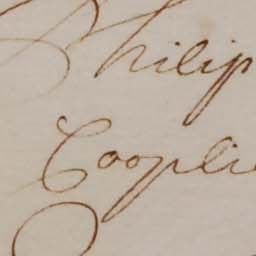 Philip
Coopli